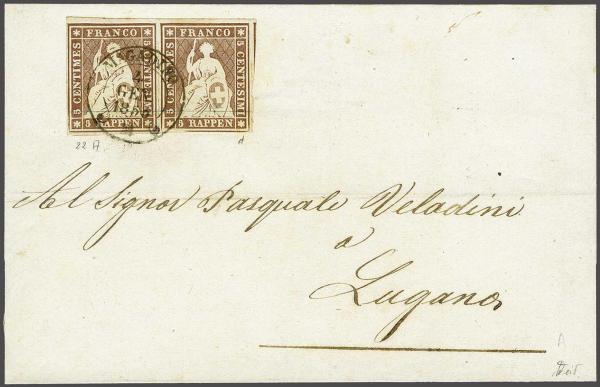 FRANCO FRANCO
5 CENTIMES 5 CENTESIMI 5 CENTIMES 5 CENTESIMI
GEN
5 RAPPEN 5 RAPPEN
22 A
d
Al Signor Pasquale Veladini
a
Lugano
A